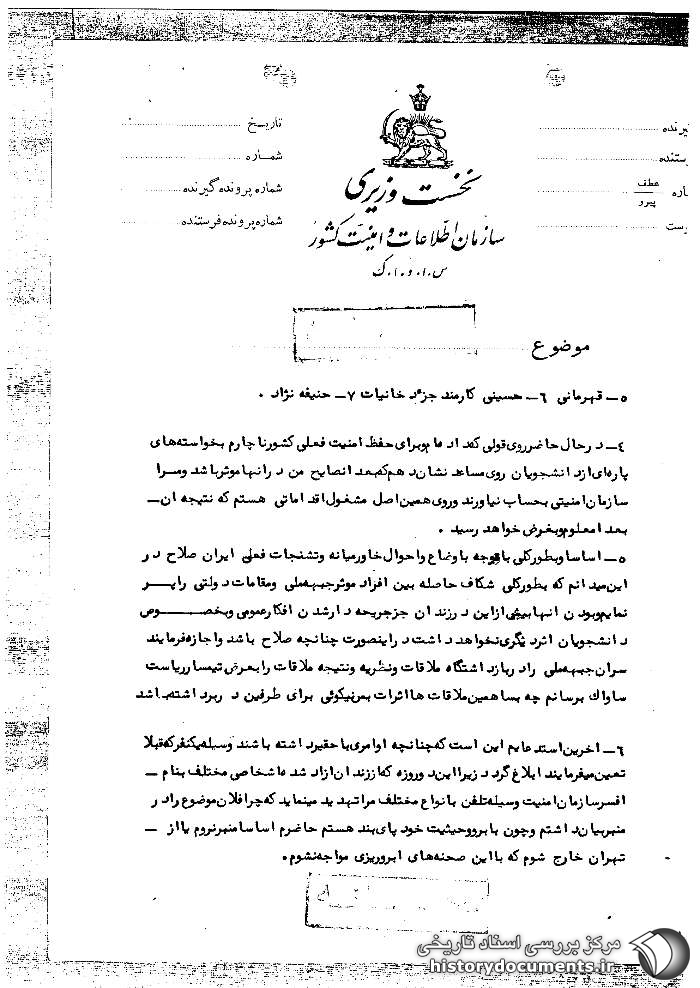 تاریخ
شماره
شماره پرونده گیرنده
شماره پرونده فرستنده
یرنده
رستنده
اره عطف
پیرو
وست
نخست وزیری
سازمان اطلاعات و امنیت کشور
س.ا.و.ا.ک
موضوع
۵- قهرمانی ۶- حسینی کارمند جزء دخانیات ۷- حنیفه نژاد .
۴- در حال حاضر روی قولی که داده ام و برای حفظ امنیت فعلی کشور ناچارم بخواسته های
پاره ای از دانشجویان روی مساعد نشان دهم که بعد انصایح من در آنها موثر باشد و مرا
سازمان امنیتی بحساب نیاورند و روی همین اصل مشغول اقداماتی هستم که نتیجه آن-
بعدا معلوم و بغرض خواهد رسید .
۵- اساسا و بطور کلی با توجه با وضاع و احوال خاورمیانه و تشنجات فعلی ایران صلاح در
این میدانم که بطور کلی شکاف حاصله بین افراد موثر جبهه ملی و مقامات دولتی را پر
نمایم و بودن آنها بیش از این در زندان جز جریحه دار شدن افکار عمومی و بخصوص
دانشجویان اثر دیگری نخواهد داشت در اینصورت چنانچه صلاح باشد و اجازه فرمایند
سران جبهه ملی را در بازداشتگاه ملاقات و نظریه و نتیجه ملاقات را بعرض تیمسار ریاست
ساواک برسانم چه بسا همین ملاقات ها اثرات بس نیکوئی برای طرفین در برداشته باشد
۶- آخرین استدعایم این است که چنانچه اوامری با حقیر داشته باشند وسیله یکنفر که قبلا
تعیین میفرمایند ابلاغ گردد زیرا این دو روزه که از زندان آزاد شده ام اشخاصی مختلف بنام -
افسر سازمان امنیت وسیله تلفن با نواع مختلف مرا تهدید مینماید که چرا فلان موضوع را در
منبر بیان داشتم و چون با برو وحیثیت خود پای بند هستم حاضرم اساسا منبر نروم یا از -
تهران خارج شوم که با این صحنه های ابروریزی مواجه نشوم.
مرکز بررسی اسناد تاریخی
historydocuments.ir